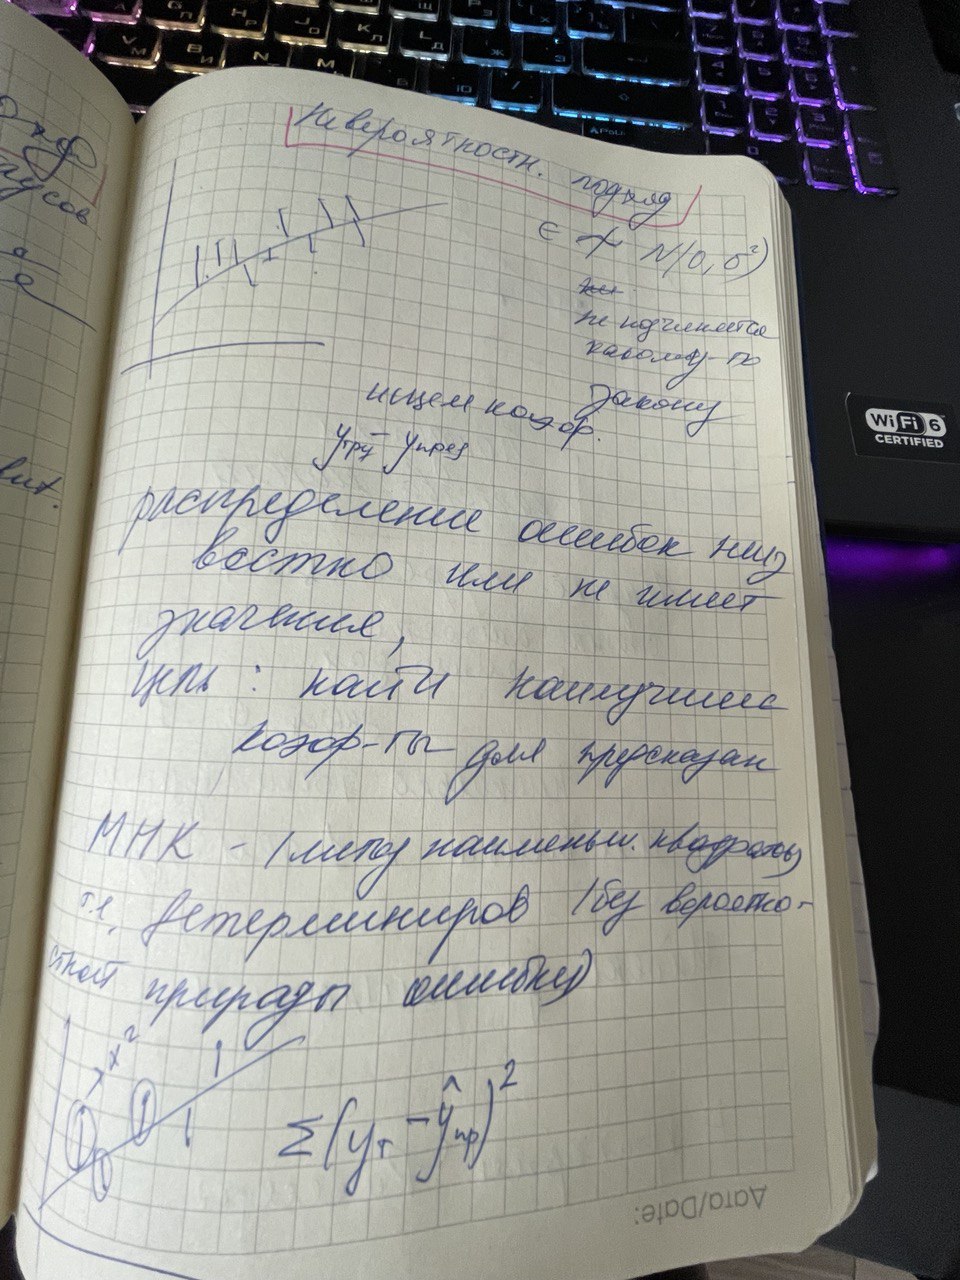 Невероятностн. подход
ϵ ≁ N(0, σ²)
не подчиняется
какому-то
закону
ищем коэф.
yтру - yпред
распределение ошибок неиз
вестно или не имеет
значения,
Цель: найти наилучшие
коэф-ты для предсказан
МНК - (метод наименьш. квадратов)
т.е. детерминиров (без вероятно-
стной природы ошибки)
x²
Σ(yт - ŷпр)²
Дата/Date:
WiFi 6
CERTIFIED